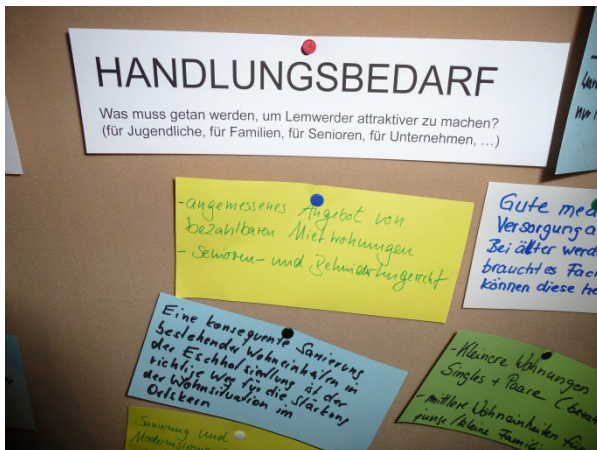 HANDLUNGSBEDARF
Was muss getan werden, um Lemwerder attraktiver zu machen?
(für Jugendliche, für Familien, für Senioren, für Unternehmen, ...)
-angemessenes Angebot von
bezahlbaren Mietwohnungen
- Senioren- und Behindertengerecht
Gute med
Versorgung a
Bei älter werd
braucht es Fach
können diese he
Eine konsequente Sanierung
bestehender Wohneinheiten in
der Eschhofsiedlung ist der
richtige Weg für die Stärkung
der Wohnsituation im
Ortskern
-Kleinere Wohnungen
Singles + Paare (beza
- mittlere Wohneinheiten für
junge/kleine Famili
Sanierung und
Modernisieru